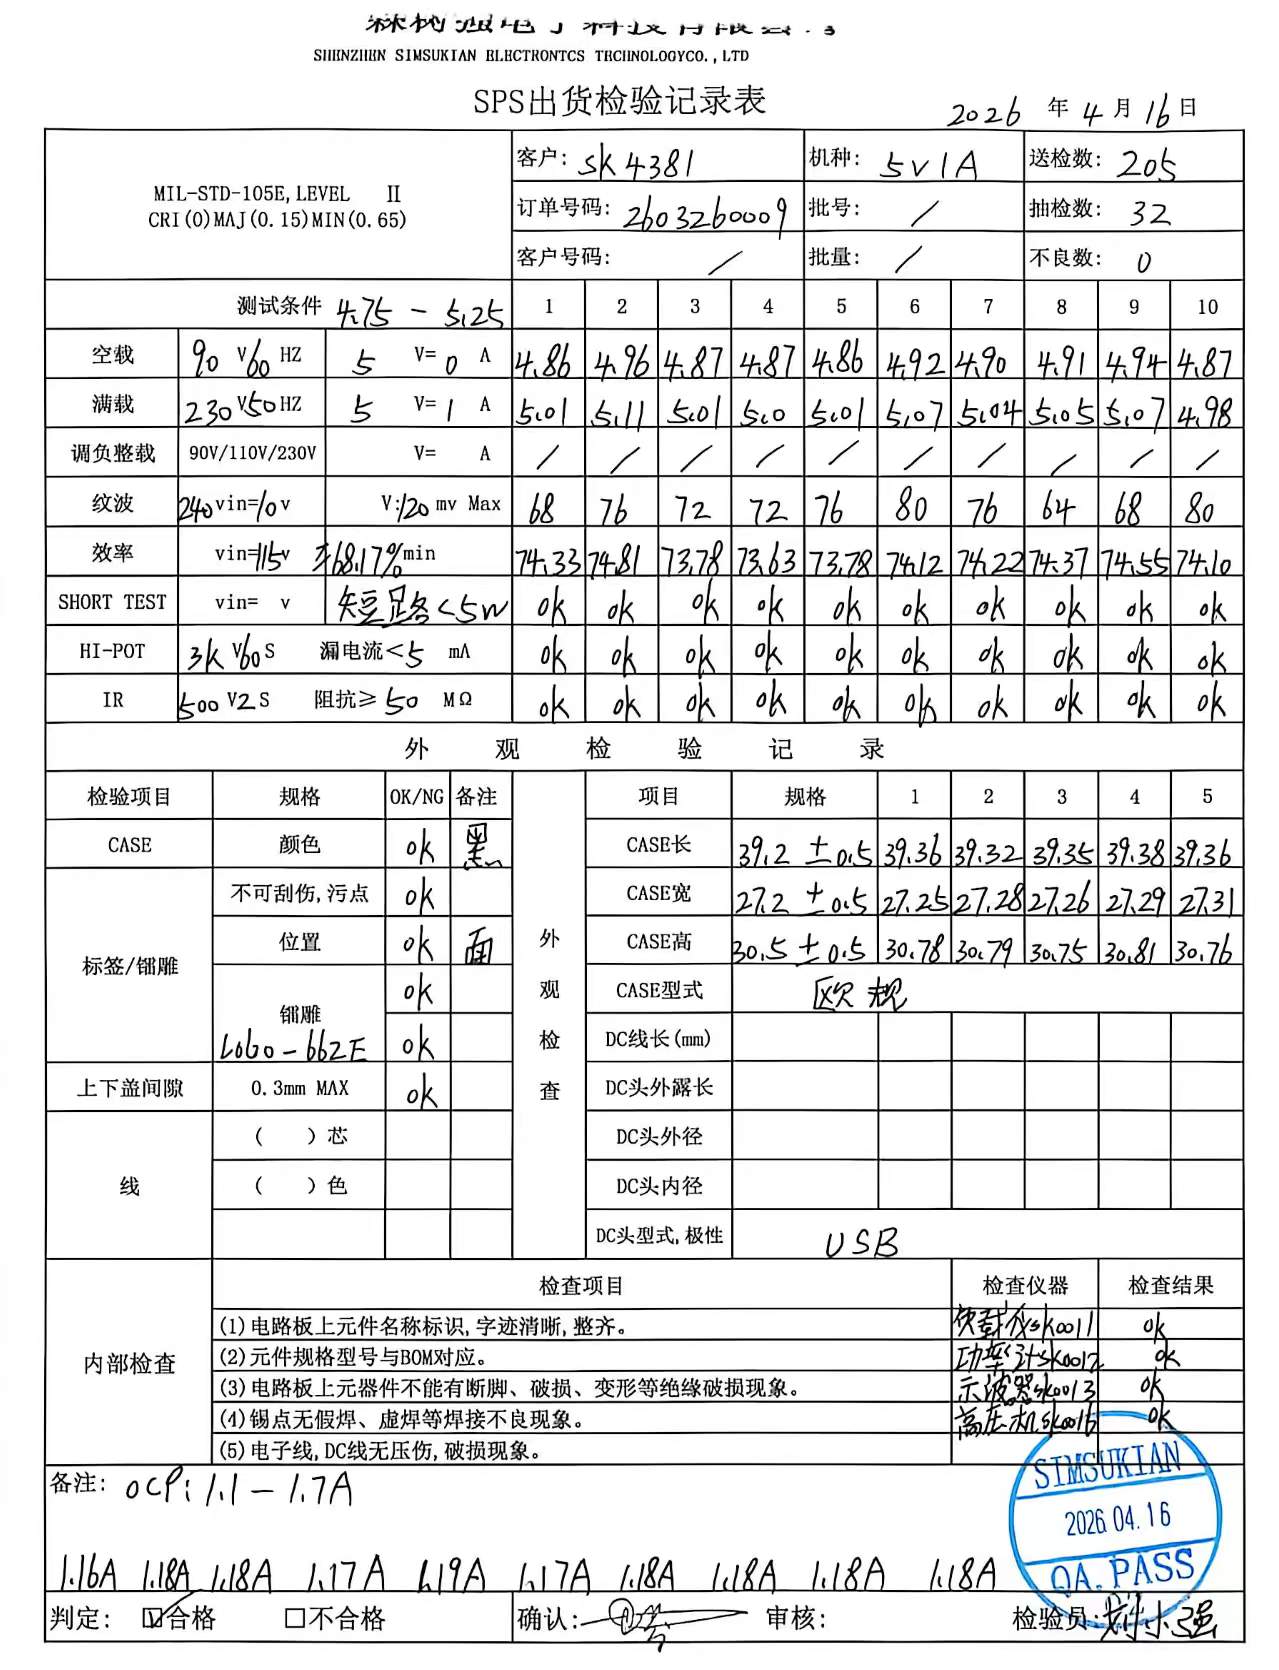 SHENZHEN SIMSUKIAN ELECTRONTCS TECHNOLOGYCO.,LTD
SPS出货检验记录表
2026 年 4 月 16 日
MIL-STD-105E,LEVEL Ⅱ
CRI(0)MAJ(0.15)MIN(0.65)
客户: SK4381 机种: 5V1A 送检数: 205
订单号码: 2603260009 批号: / 抽检数: 32
客户号码: / 批量: / 不良数: 0
测试条件 4.75 - 5.25 1 2 3 4 5 6 7 8 9 10
空载 90 V 60 HZ 5 V= 0 A 4.86 4.96 4.87 4.87 4.86 4.92 4.90 4.91 4.94 4.87
满载 230 V 50 HZ 5 V= 1 A 5.01 5.11 5.01 5.0 5.01 5.07 5.04 5.05 5.07 4.98
调负整载 90V/110V/230V V= A / / / / / / / / / /
纹波 240 vin=10 v V:120 mv Max 68 76 72 72 76 80 76 64 68 80
效率 vin=115v 68.17% min 74.33 74.81 73.78 73.63 73.78 74.12 74.22 74.37 74.55 74.10
SHORT TEST vin= v 短路<5W ok ok ok ok ok ok ok ok ok ok
HI-POT 3K V 60 S 漏电流<5 mA ok ok ok ok ok ok ok ok ok ok
IR 500 V 2 S 阻抗≥50 MΩ ok ok ok ok ok ok ok ok ok ok
外 观 检 验 记 录
检验项目 规格 OK/NG 备注 项目 规格 1 2 3 4 5
CASE 颜色 ok 黑 CASE长 39.2 ±0.5 39.36 39.32 39.35 39.38 39.36
不可刮伤,污点 ok CASE宽 27.2 ±0.5 27.25 27.28 27.26 27.29 27.31
标签/镭雕 位置 ok 面 外观检查 CASE高 30.5 ±0.5 30.78 30.79 30.75 30.81 30.76
ok CASE型式 欧规
镭雕 LOGO-662E ok DC线长(mm)
上下盖间隙 0.3mm MAX ok DC头外露长
( )芯 DC头外径
线 ( )色 DC头内径
DC头型式,极性 USB
检查项目 检查仪器 检查结果
内部检查
(1)电路板上元件名称标识,字迹清晰,整齐。 负载仪SK0011 ok
(2)元件规格型号与BOM对应。 功率计SK0012 ok
(3)电路板上元器件不能有断脚、破损、变形等绝缘破损现象。 示波器SK0013 ok
(4)锡点无假焊、虚焊等焊接不良现象。 高压机SK0016 ok
(5)电子线,DC线无压伤,破损现象。
备注: OCP: 1.1 - 1.7A
SIMSUKIAN
2026.04.16
QA.PASS
1.16A 1.18A 1.18A 1.17A 1.19A 1.17A 1.18A 1.18A 1.18A 1.18A
判定: ☑合格 □不合格 确认: 审核: 检验员: 刘小强